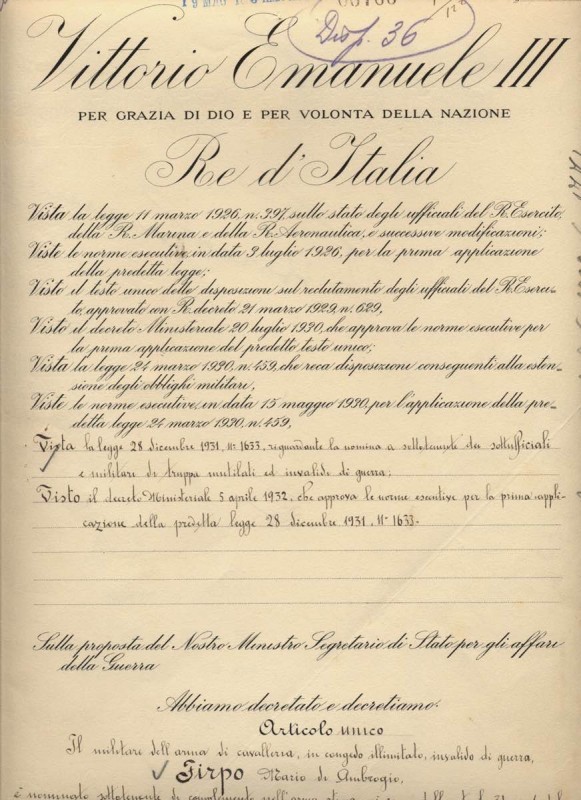 Disp. 36
Vittorio Emanuele III
PER GRAZIA DI DIO E PER VOLONTA DELLA NAZIONE
Re d'Italia
Vista la legge 11 marzo 1926, n. 397, sullo stato degli ufficiali del R. Esercito,
della R. Marina e della R. Aeronautica, e successive modificazioni;
Viste le norme esecutive in data 9 luglio 1926, per la prima applicazione
della predetta legge;
Visto il testo unico delle disposizioni sul reclutamento degli ufficiali del R. Eserci-
to, approvato con R. decreto 21 marzo 1929, n. 629,
Visto il decreto Ministeriale 20 luglio 1930, che approva le norme esecutive per
la prima applicazione del predetto testo unico;
Vista la legge 24 marzo 1930, n. 459, che reca disposizioni conseguenti alla esten-
sione degli obblighi militari,
Viste le norme esecutive in data 15 maggio 1930, per l'applicazione della pre-
detta legge 24 marzo 1930, n. 459,
Vista la legge 28 dicembre 1931, n° 1633, riguardante la nomina a sottotenente dei sottufficiali
e militari di truppa mutilati ed invalidi di guerra;
Visto il decreto Ministeriale 5 aprile 1932, che approva le norme esecutive per la prima appli-
cazione della predetta legge 28 dicembre 1931, n° 1633.
Sulla proposta del Nostro Ministro Segretario di Stato per gli affari
della Guerra
Abbiamo decretato e decretiamo:
Articolo unico
Il militare dell'arma di cavalleria, in congedo illimitato, invalido di guerra,
Tirpo Mario di Ambrogio,
è nominato sottotenente di complemento nell'arma